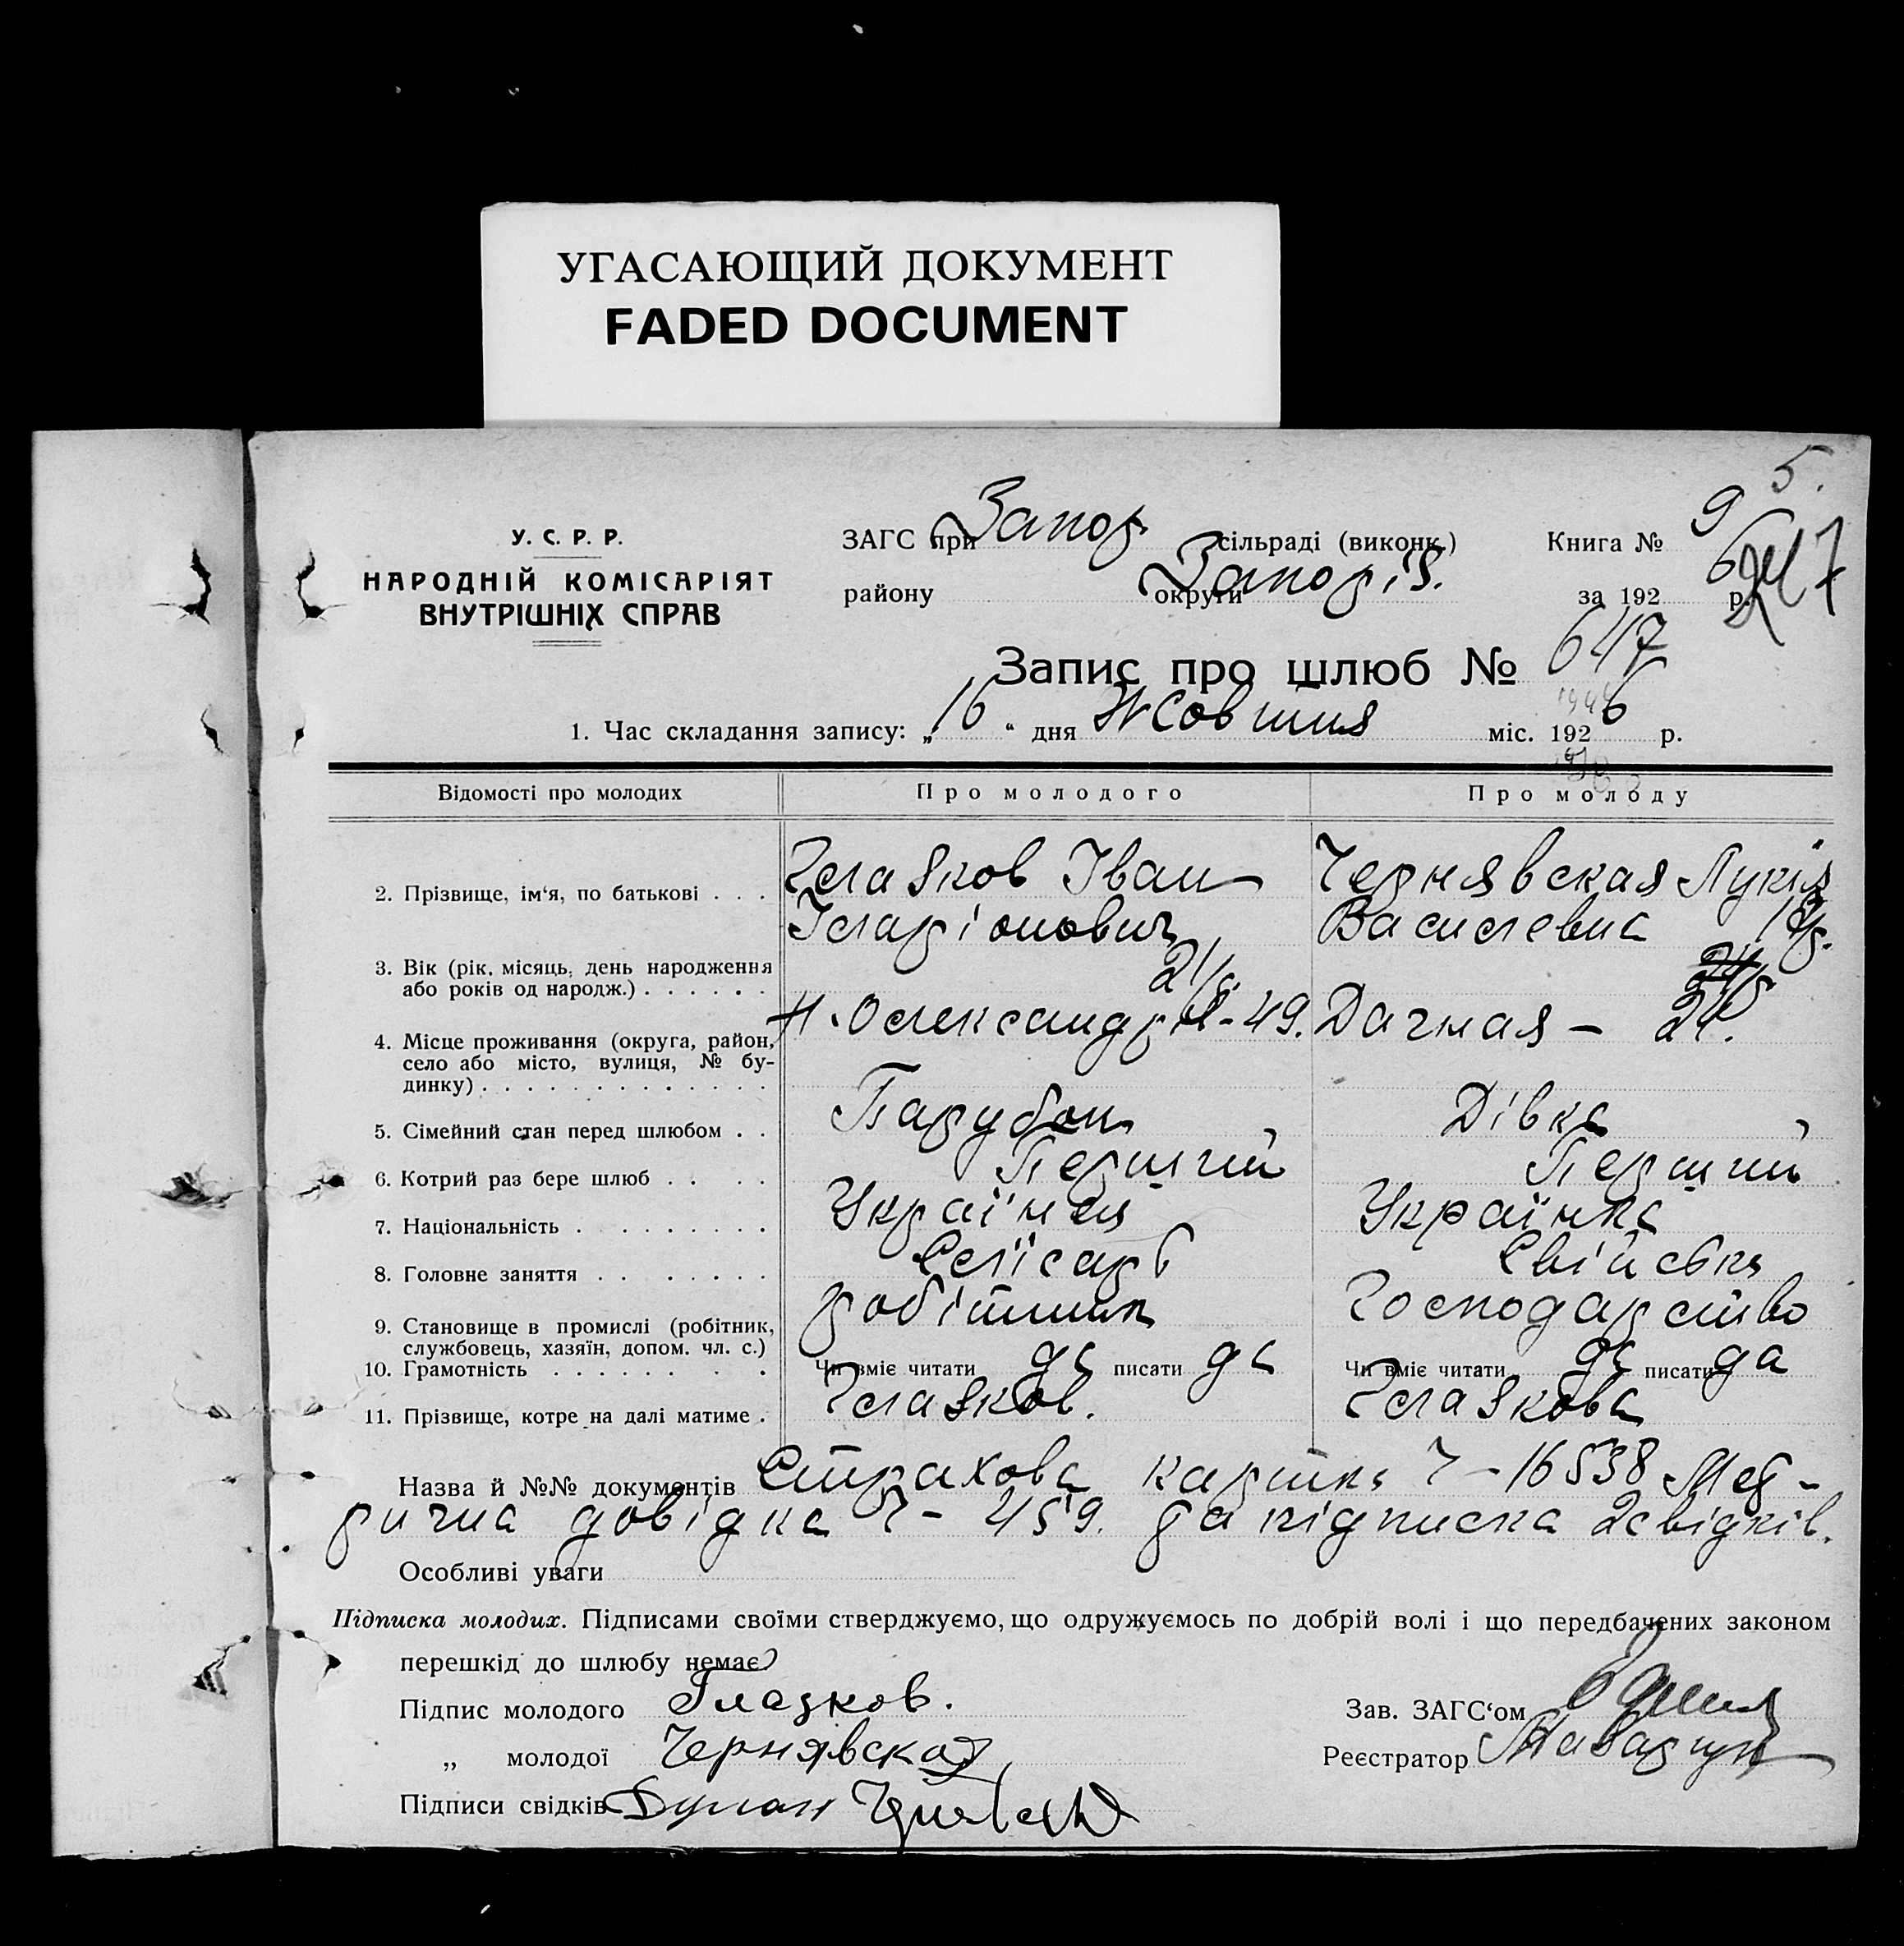 УГАСАЮЩИЙ ДОКУМЕНТ
FADED DOCUMENT
5.
У. С. Р. Р.
НАРОДНІЙ КОМІСАРІЯТ
ВНУТРІШНІХ СПРАВ
ЗАГС при Запор. сільраді (виконк.) Книга № 9
району округи Запоріз. за 1926 р. 247
Запис про шлюб № 647
1. Час складання запису: „16“ дня Жовтня міс. 1926 р.
Відомості про молодих Про молодого Про молоду
2. Прізвище, ім‘я, по батькові . . . Глазков Іван Чернявская Лукія
Іларіонович Василевна
3. Вік (рік, місяць, день народження 21/р.
або років од народж.) . . . . . .
4. Місце проживання (округа, район, Н. Олександрія-49. Дачная - 24.
село або місто, вулиця, № бу-
динку) . . . . . . . . . . . . .
5. Сімейний стан перед шлюбом . . Парубок Дівка
6. Котрий раз бере шлюб . . . . Перший Перший
7. Національність . . . . . . . . . Українец Українка
8. Головне заняття . . . . . . . . Слісарь Свійське
9. Становище в промислі (робітник, робітник Господарство
службовець, хазяїн, допом. чл. с.)
10. Грамотність . . . . . . . . . Чи вміє читати да писати да Чи вміє читати да писати да
11. Прізвище, котре на далі матиме . Глазков. Глазкова
Назва й №№ документів Страхова картка Ч-16538 Мет-
рична довідка Ч- 459. та підписка 2 свідків.
Особливі уваги
Підписка молодих. Підписами своїми стверджуємо, що одружуємось по добрій волі і що передбачених законом
перешкід до шлюбу немає
Підпис молодого Глазков. Зав. ЗАГС‘ом
„ молодої Чернявская Реєстратор
Підписи свідків